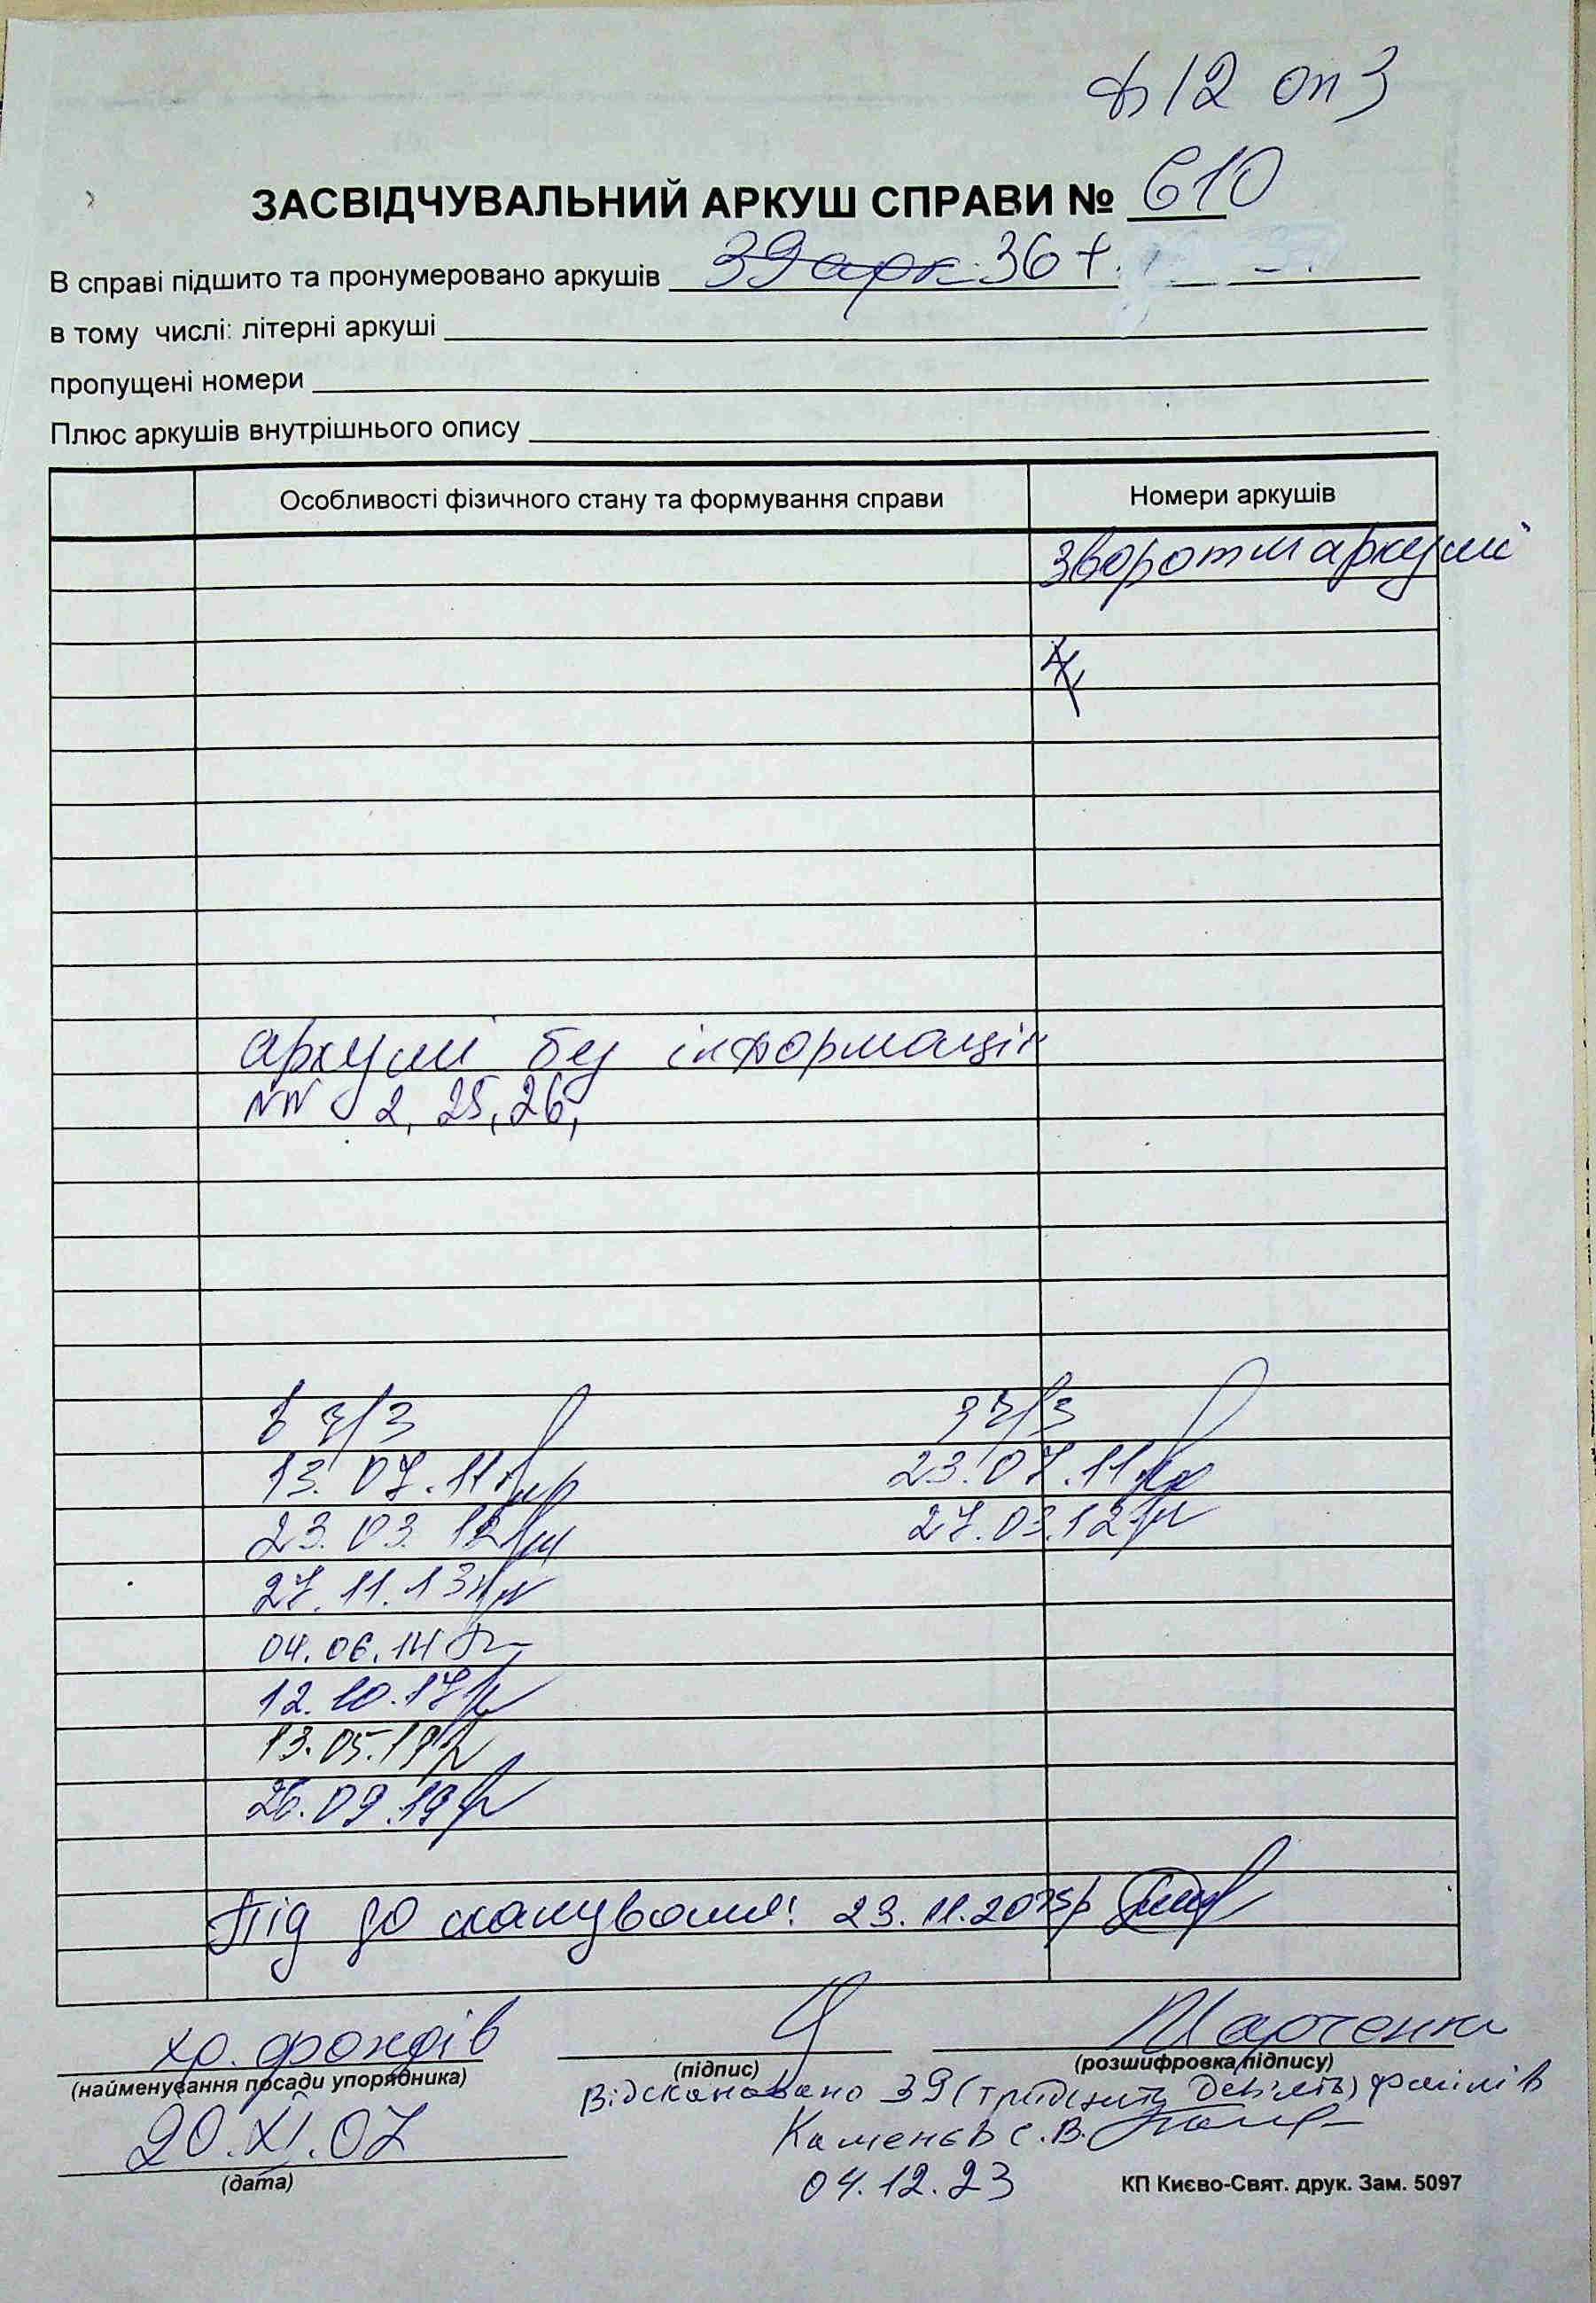 ф 12 оп 3
ЗАСВІДЧУВАЛЬНИЙ АРКУШ СПРАВИ № 610
В справі підшито та пронумеровано аркушів 39 арк. 36 +
в тому числі: літерні аркуші
пропущені номери
Плюс аркушів внутрішнього опису
Особливості фізичного стану та формування справи Номери аркушів
зворотні аркуші
4
аркуші без інформації
NN 2, 25, 26,
в ч/з з ч/з
13.07.11 23.07.11
23.03.12 27.03.12
27.11.13
04.06.14
12.10.17
13.05.19
26.09.19
Під до сканування! 23.11.2023р
хр. фондів Марченко
(найменування посади упорядника) (підпис) (розшифровка підпису)
Відскановано 39 (тридцять дев'ять) файлів
20.XI.07 Каменєв С.В.
(дата) 04.12.23 КП Києво-Свят. друк. Зам. 5097